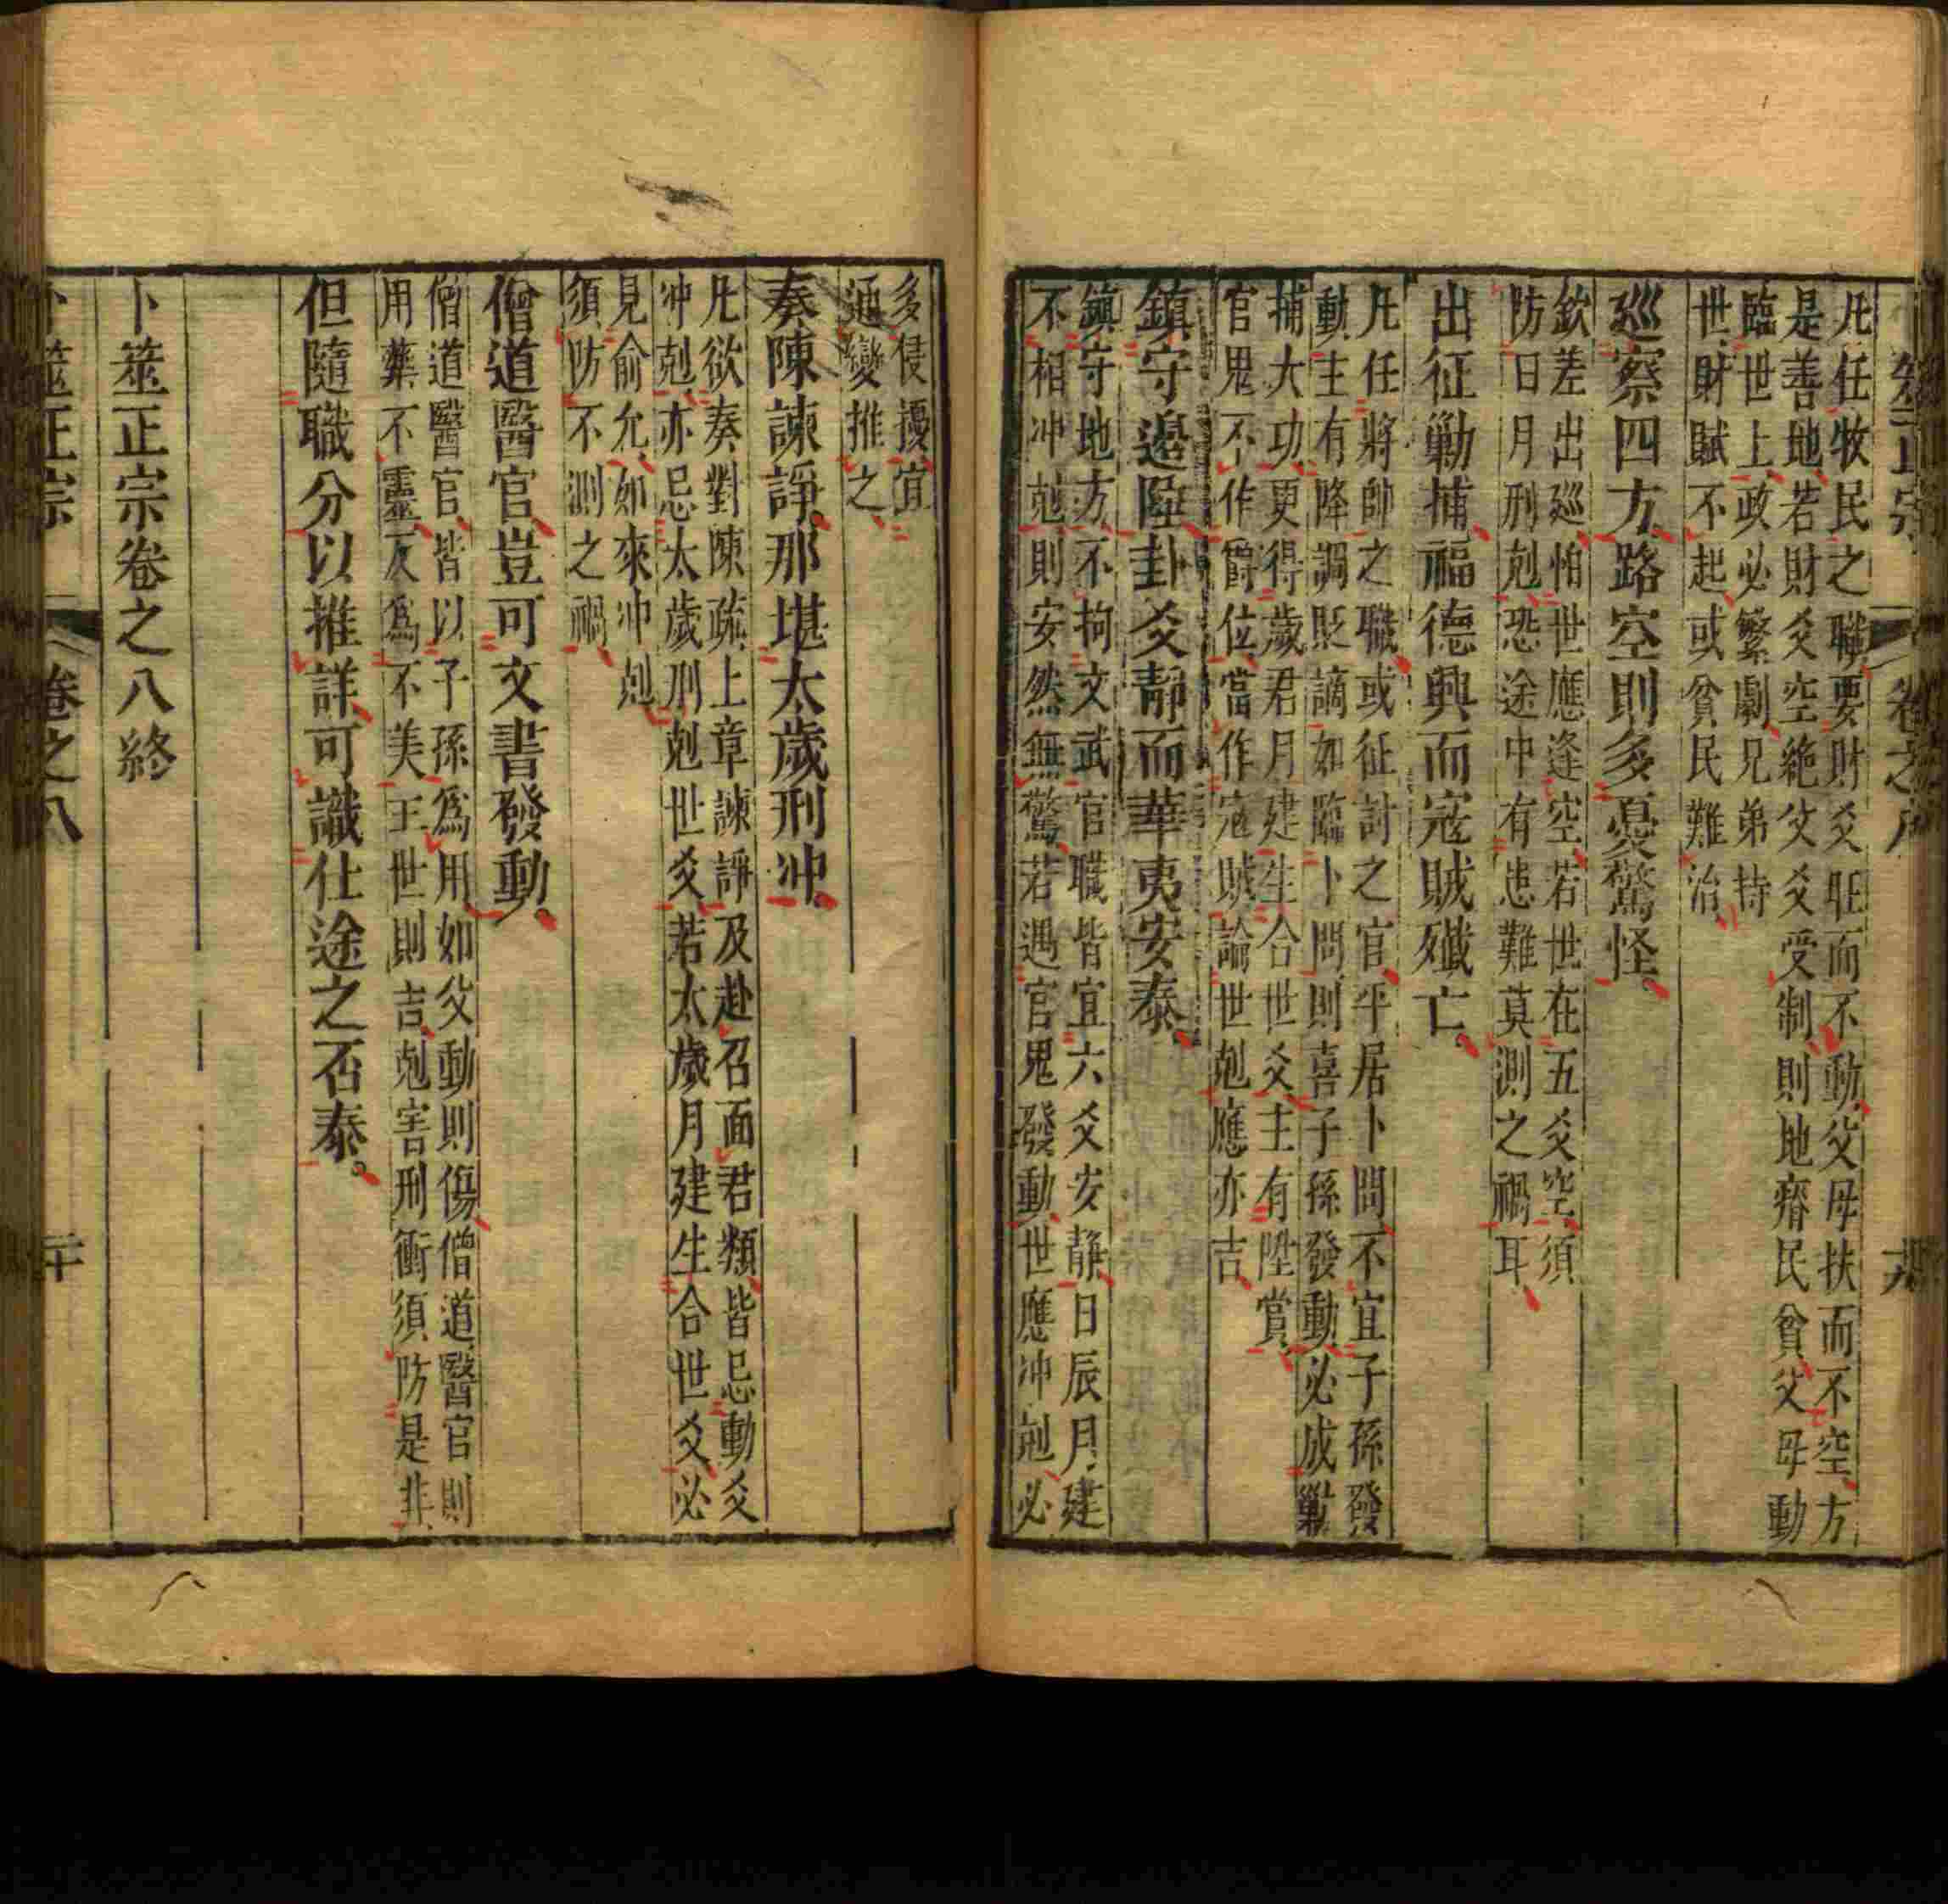 筮正宗 卷之八 十九
凡任牧民之職要財爻旺而不動父母扶而不空方
是善地若財爻空絶父爻受制則地瘠民貧父母動
臨世上政必繁劇兄弟持
世財賦不起或貧民難治
巡察四方路空則多憂驚怪
欽差出巡怕世應逢空若世在五爻空須
防日月刑剋恐途中有患難莫測之禍耳
出征勦捕福德興而寇賊殲亡
凡任將帥之職或征討之官平居卜問不宜子孫發
動主有降調貶謫如臨卜問則喜子孫發動必成勦
捕大功更得歲君月建生合世爻主有陞賞
官鬼不作爵位當作寇賊論世剋應亦吉
鎮守邊陲卦爻靜而華夷安泰
鎮守地方不拘文武官職皆宜六爻安靜日辰月建
不相冲剋則安然無驚若遇官鬼發動世應冲剋必
多侵擾宜
通變推之
奏陳諫諍那堪太歲刑冲
凡欲奏對陳疏上章諫諍及赴召面君類皆忌動爻
冲剋亦忌太歲刑剋世爻若太歲月建生合世爻必
見俞允如來冲剋
須防不測之禍
僧道醫官豈可文書發動
僧道醫官皆以子孫爲用如父動則傷僧道醫官則
用藥不靈反爲不美王世則吉剋害刑衝須防是非
但隨職分以推詳可識仕途之否泰
卜筮正宗卷之八終
卜筮正宗 卷之八 二十